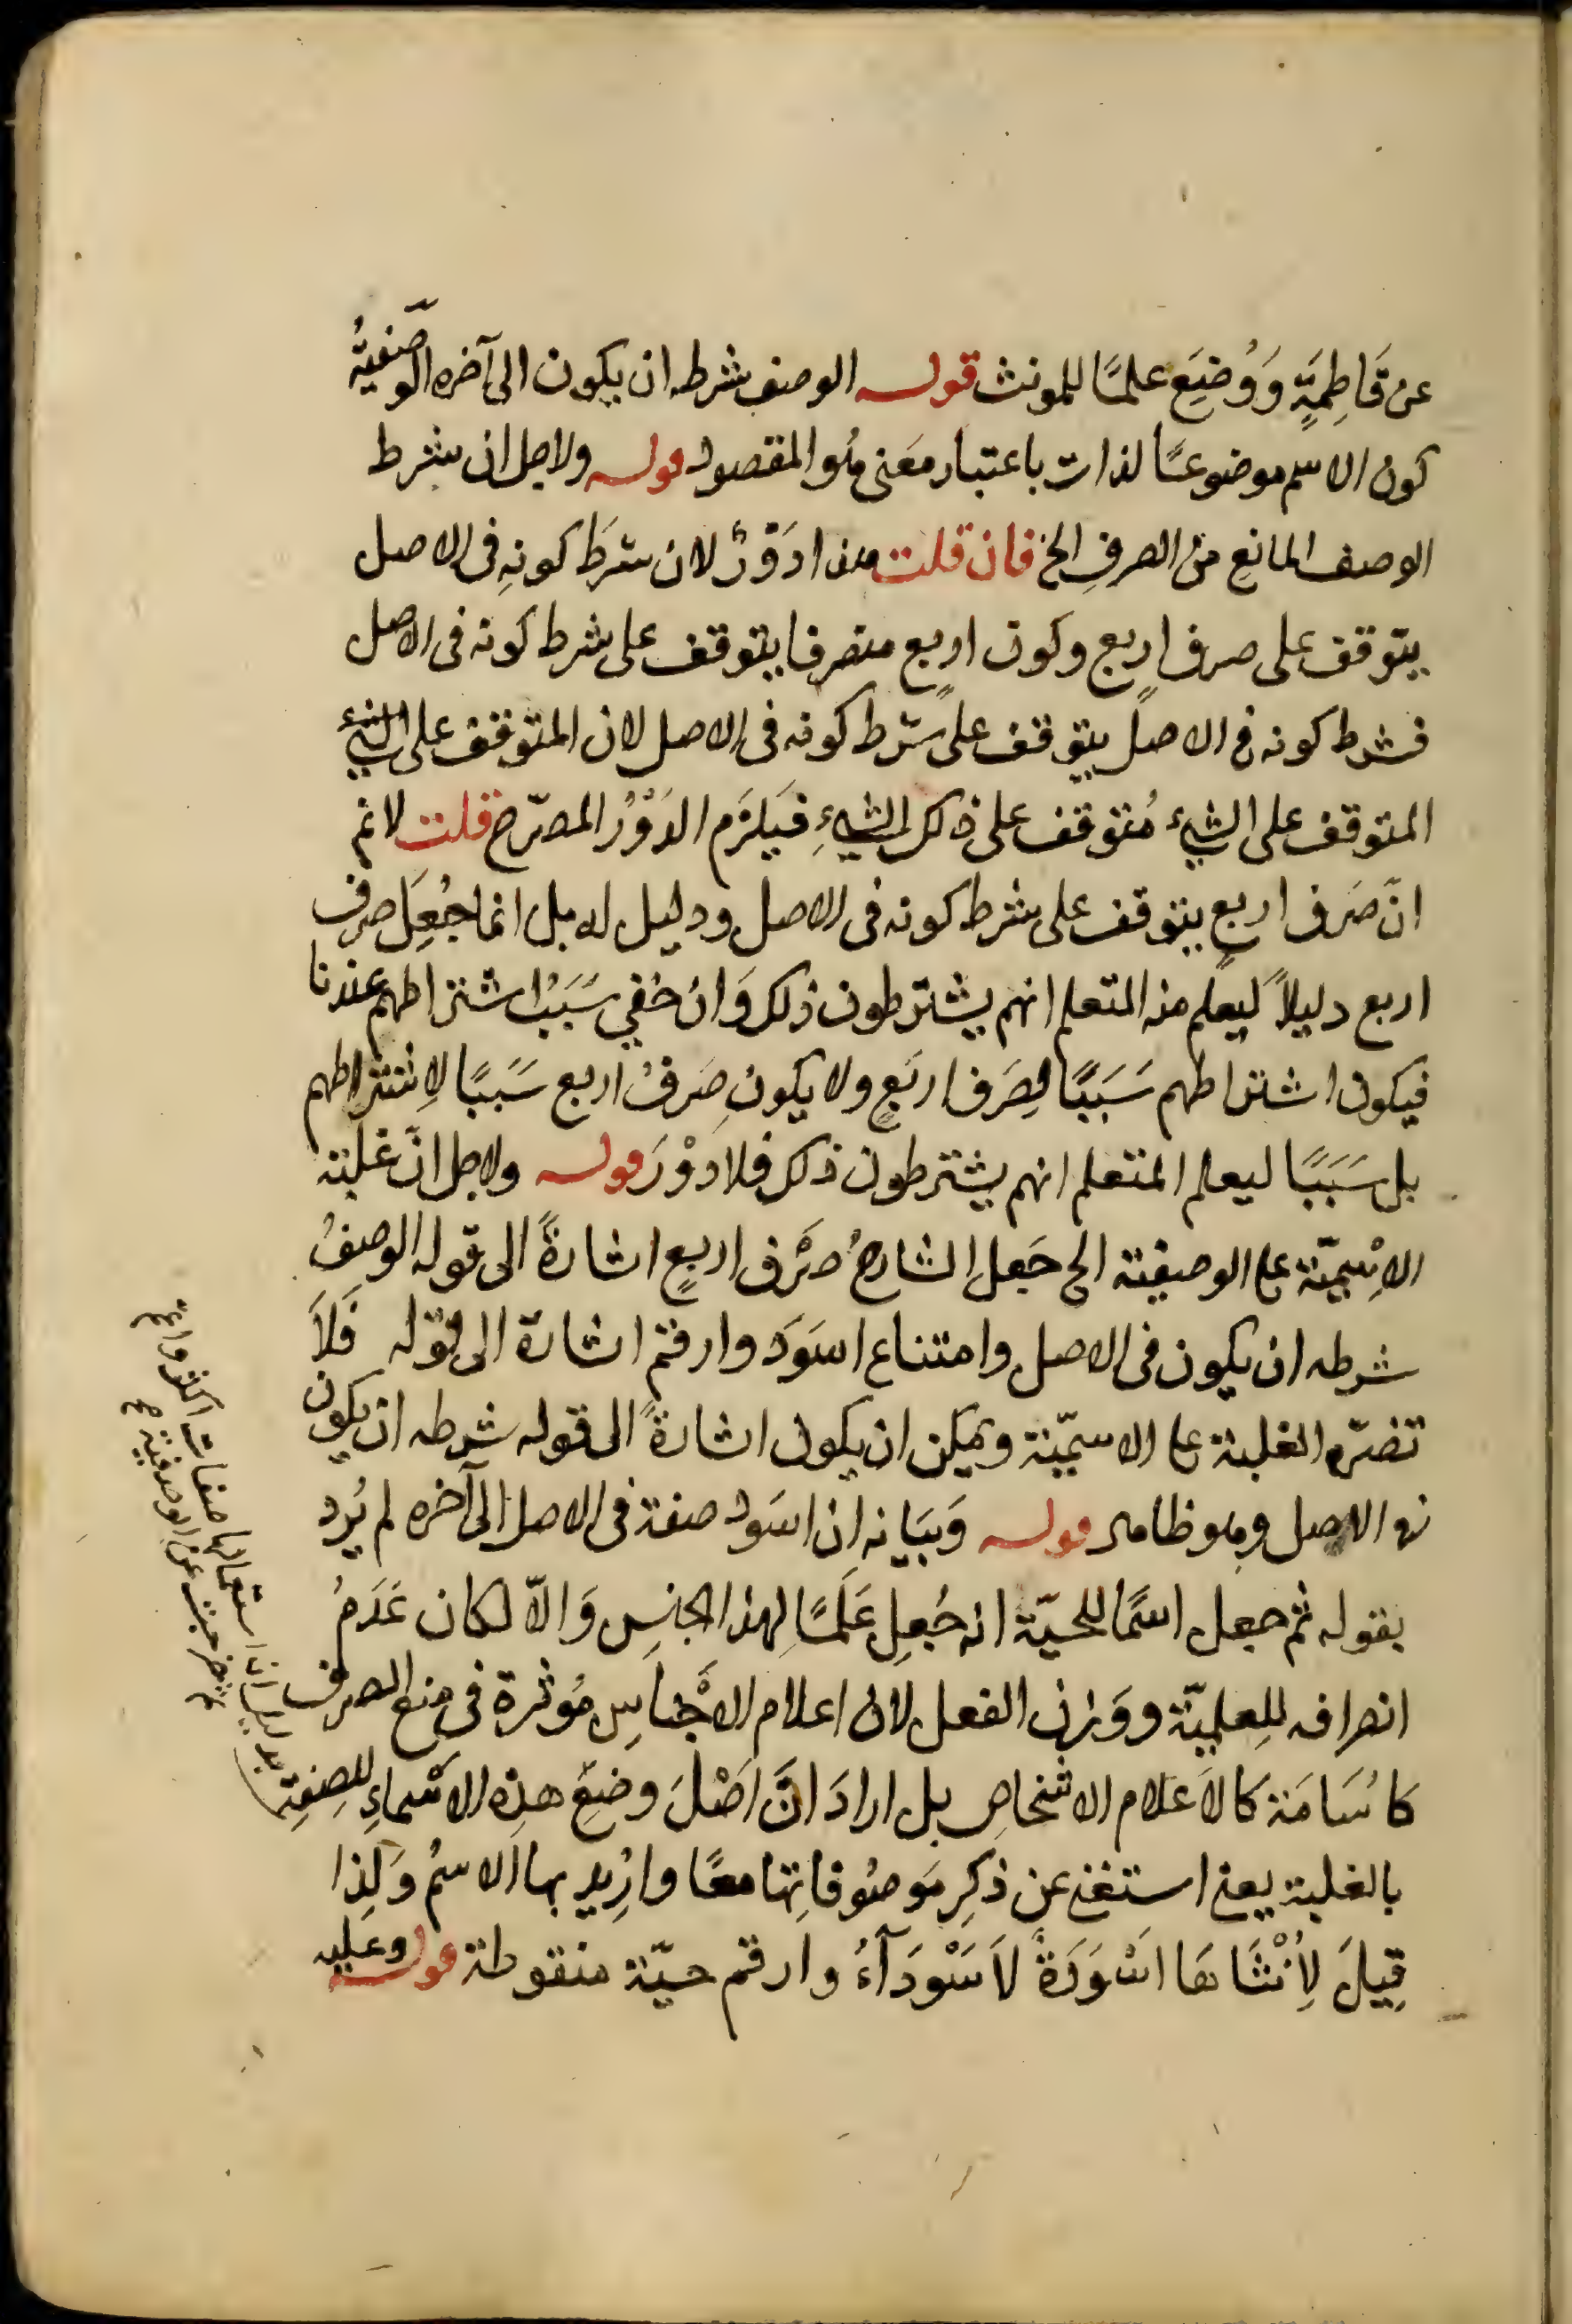 عن قَاطِمَةٍ وَوُضِعَ علمًا للمونث قوله الوصف شرطه ان يكون الى آخره الوصفيّةُ
كون الاسم موضوعًا لذات باعتبار معَنى هُو المقصود قوله ولاجل ان شرط
الوصف المانعِ من الصرفِ الخ فان قلت هذا دَوْرٌ لان شرطَ كونِهِ فى الاصل
يتوقف على صرف اربع وكون اربعٍ منصرفا يتوقف على شرط كونه فى الاصل
فشرط كونه فى الاصل يتوقف على شرط كونه فى الاصل لان المتوقف على الشئ
المتوقف على الشئ مُتوقف على ذلك الشئِ فَيَلزَم الدَوْرُ المصرّح قلت لا نم
انّ صَرف اربعٍ يتوقف على شرط كونه فى الاصل ودليل له بل انما جُعِلَ صرف
اربع دليلاً ليعلم منه المتعلم انهم يشترطون ذلك وَان خفي سَبَبُ اشتراطهم عندنا
فيكون اشتراطهم سَبَبًا لِصَرف اربَعٍ ولا يكون صَرفُ اربع سَبَبًا لاِشتراطهم
بل سَبَبًا ليعلم المتعلم انهم يشترطون ذلك فلا دَوْرَ قوله ولاجل انّ غلبته
الاِسْمِيّة على الوصفية الخ جَعل الشارحُ صَرْف اربعٍ اشارةً الى قوله الوصفُ
شرطه ان يكون فى الاصل وامتناع اسَوَد وارقم اشارة الى قوله فَلاَ
تضرّه الغلبة على الاسميّة ويمكن ان يكون اشارةً الى قوله شرطه ان يكون
فى الاصل وهو ظاهر قوله وَبَيَانه ان اسَود صفة فى الاصل الى آخره لم يُرد
بقوله ثم جعل اسمًا للحيّة انه جُعِل عَلَمًا لهذا الجنسِ وَالاّ لكان عَدَمُ
انصرافه لِلعلميّة ووَزن الفعل لان اعلام الاَجْناسِ مُوثرة فى منع الصرف
كاُسَامَة كالاَعلام الاشخاص بل ارادَ انَّ اَصْلَ وضعَ هذه الاَسْماءِ للصِفةِ
بالغلبة يعنى استغنى عن ذكرِ مَوصُوفاتها معًا واُرِيد بها الاسمُ وَلِذا
قِيلَ لِاُنْثَاهَا اَسْوَدَةً لاَسَوْدَآءُ وارقم حيّة منقوطة قوله وعليه